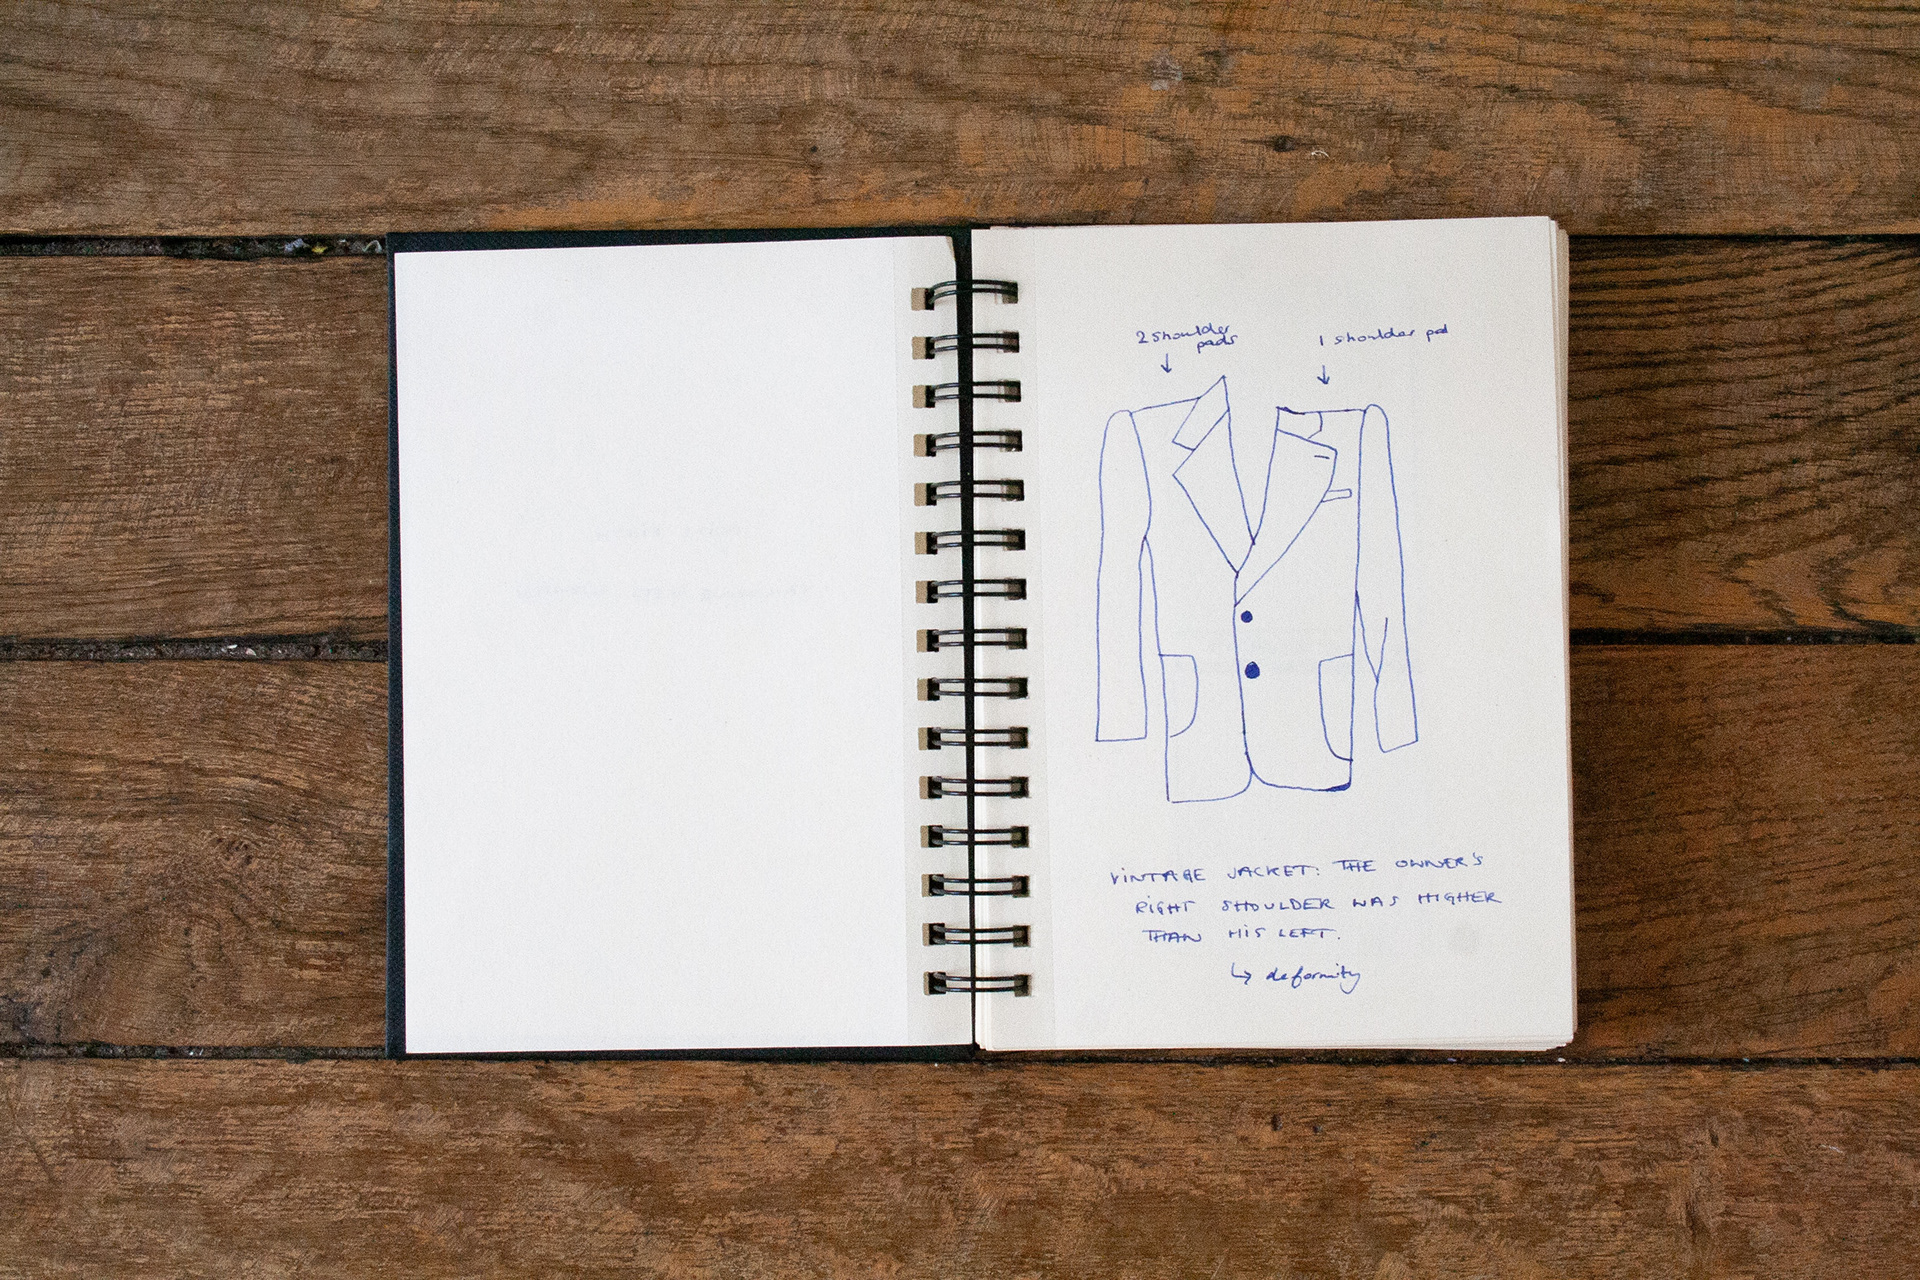 2 shoulder
pads
1 shoulder pad
VINTAGE JACKET: THE OWNER'S
RIGHT SHOULDER WAS HIGHER
THAN HIS LEFT.
↳ deformity